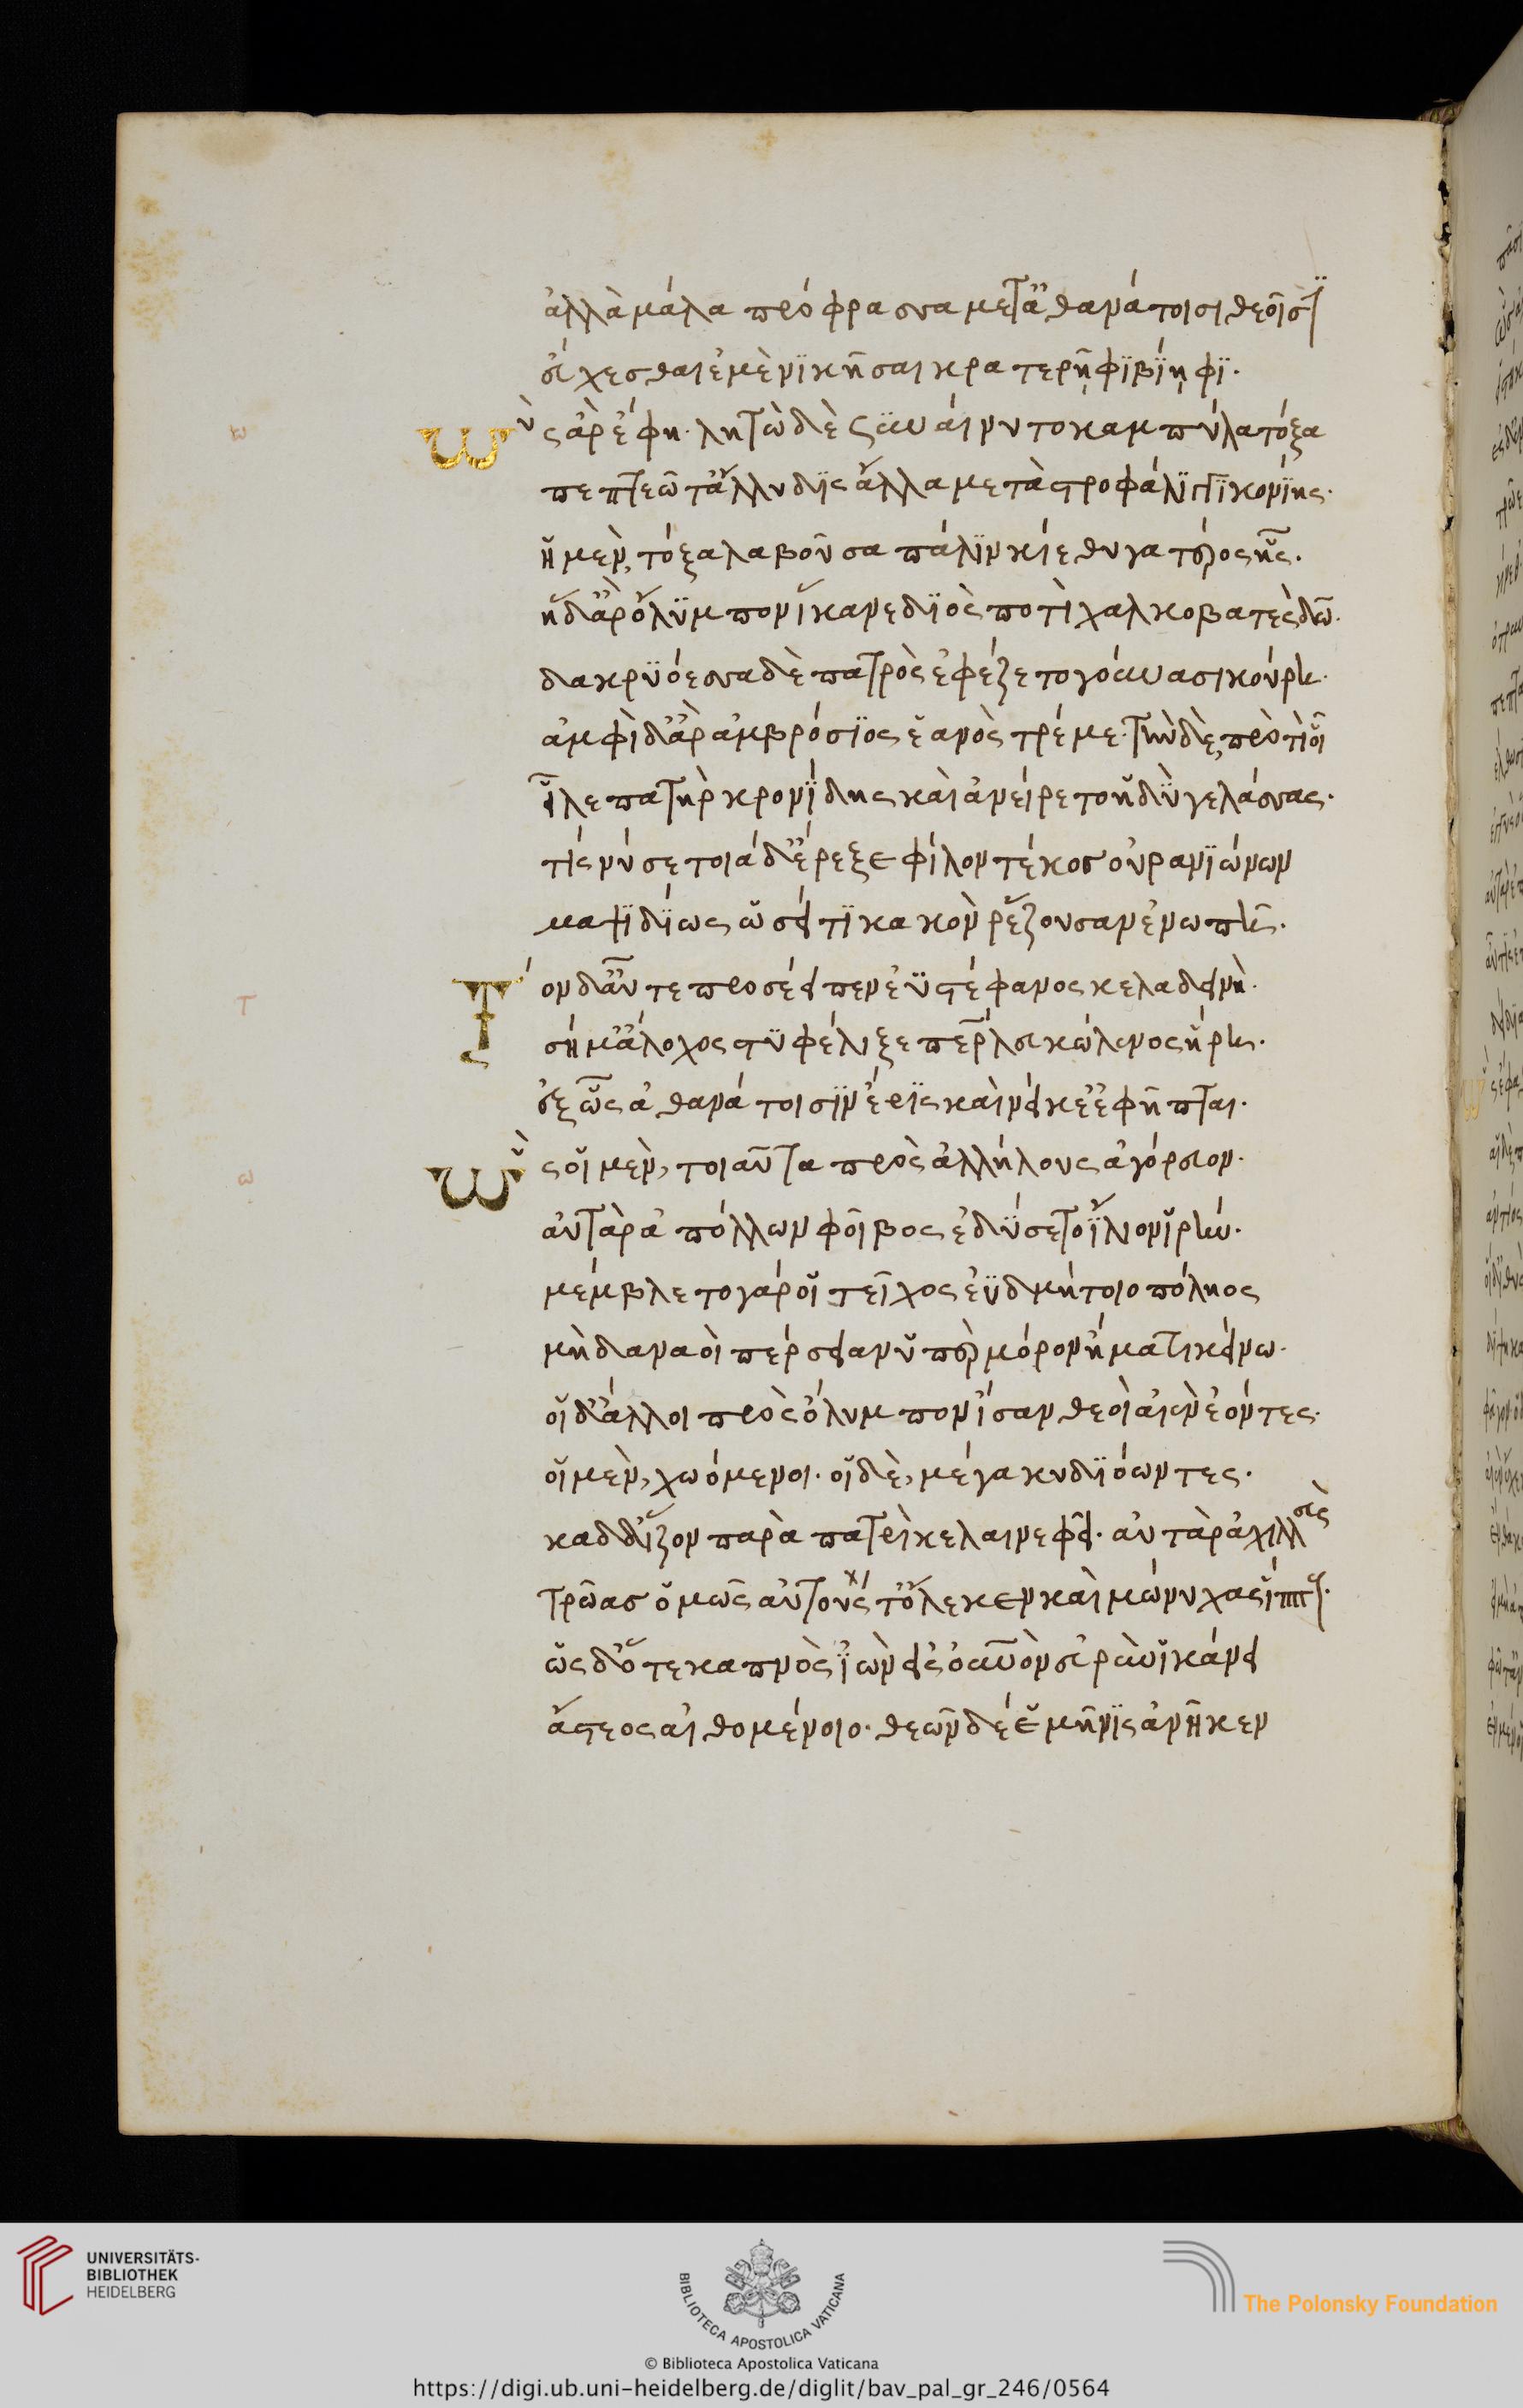 ἀλλὰ μάλα πρόφρασσα μετ' ἀθανάτοισι θεοῖσιν
εὔχεσθαι ἐμὲ νικῆσαι κρατερῆφι βίηφι.
ὣς ἄρ' ἔφη. λητὼ δὲ συναίνυτο καμπύλα τόξα
πεπτεῶτ' ἄλλυδις ἄλλα μετὰ στροφάλιγγι κονίης.
ἣ μὲν, τόξα λαβοῦσα πάλιν κίε θυγατέρος ἧς.
ἣ δ' ἄρ' ὄλυμπον ἵκανε διὸς ποτὶ χαλκοβατὲς δῶ.
δακρυόεσσα δὲ πατρὸς ἐφέζετο γούνασι κούρη.
ἀμφὶ δ' ἄρ' ἀμβρόσιος ἑανὸς τρέμε. τὴν δὲ, προτὶ οἷ
εἷλε πατὴρ κρονίδης καὶ ἀνείρετο ἡδὺ γελάσσας.
τίς νύ σε τοιάδ' ἔρεξε φίλον τέκος οὐρανιώνων
μαψιδίως ὡσεί τι κακὸν ῥέζουσαν ἐνωπῆ.
Τὸν δ' αὖτε προσέειπεν ἐϋστέφανος κελαδεινὴ.
σή μ' ἄλοχος στυφέλιξε πάτερ λευκώλενος ἥρη.
ἐξ ἧς ἀθανάτοισιν ἔρις καὶ νεῖκε' ἐφῆπται.
ὣς οἱ μὲν, τοιαῦτα πρὸς ἀλλήλους ἀγόρευον.
αὐτὰρ ἀπόλλων φοῖβος ἐδύσετο ἴλιον ἱρήν.
μέμβλετο γάρ οἱ τεῖχος ἐϋδμήτοιο πόληος
μὴ δαναοὶ πέρσειαν ὑπὲρ μόρον ἤματι κείνω.
οἱ δ' ἄλλοι πρὸς ὄλυμπον ἴσαν θεοὶ αἰὲν ἐόντες.
οἱ μὲν, χωόμενοι. οἱ δὲ, μέγα κυδιόωντες.
καδδ' ἷζον παρὰ πατρὶ κελαινεφεῖ. αὐτὰρ ἀχιλλεὺς
τρῶας ὁμῶς αὐτούς τ' ὄλεκεν καὶ μώνυχας ἵππους.
ὡς δ' ὅτε καπνὸς ἰὼν εἰς οὐρανὸν εὐρὺν ἱκάνει
ἄστεος αἰθομένοιο. θεῶν δέ ἑ μῆνις ἀνῆκεν
ω
τ
ω
UNIVERSITÄTS-
BIBLIOTHEK
HEIDELBERG
BIBLIOTECA APOSTOLICA VATICANA
The Polonsky Foundation
© Biblioteca Apostolica Vaticana
https://digi.ub.uni-heidelberg.de/diglit/bav_pal_gr_246/0564